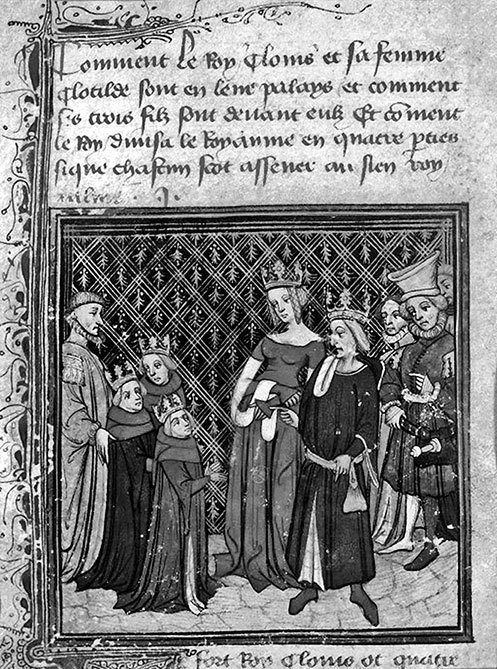 Comment Le Roy Clouis et sa femme
Clotilde sont en leur palays et comment
s's trois filz sont deuant eulx Et coment
le Roy diuisa le Royaume en quatre pties
sique chascun scot assener au sien roy
aulme . J .
fort Roy Clouis ot quatre